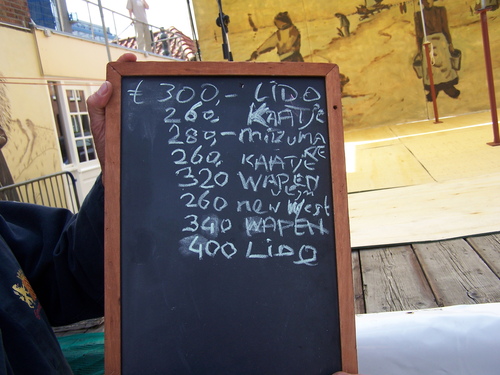 € 300,- LIDO
260, KAATJE
280,- MIZUMA
260, KAATJE
320 WAPEN
260 new West
340 WAPEN
400 LIDO